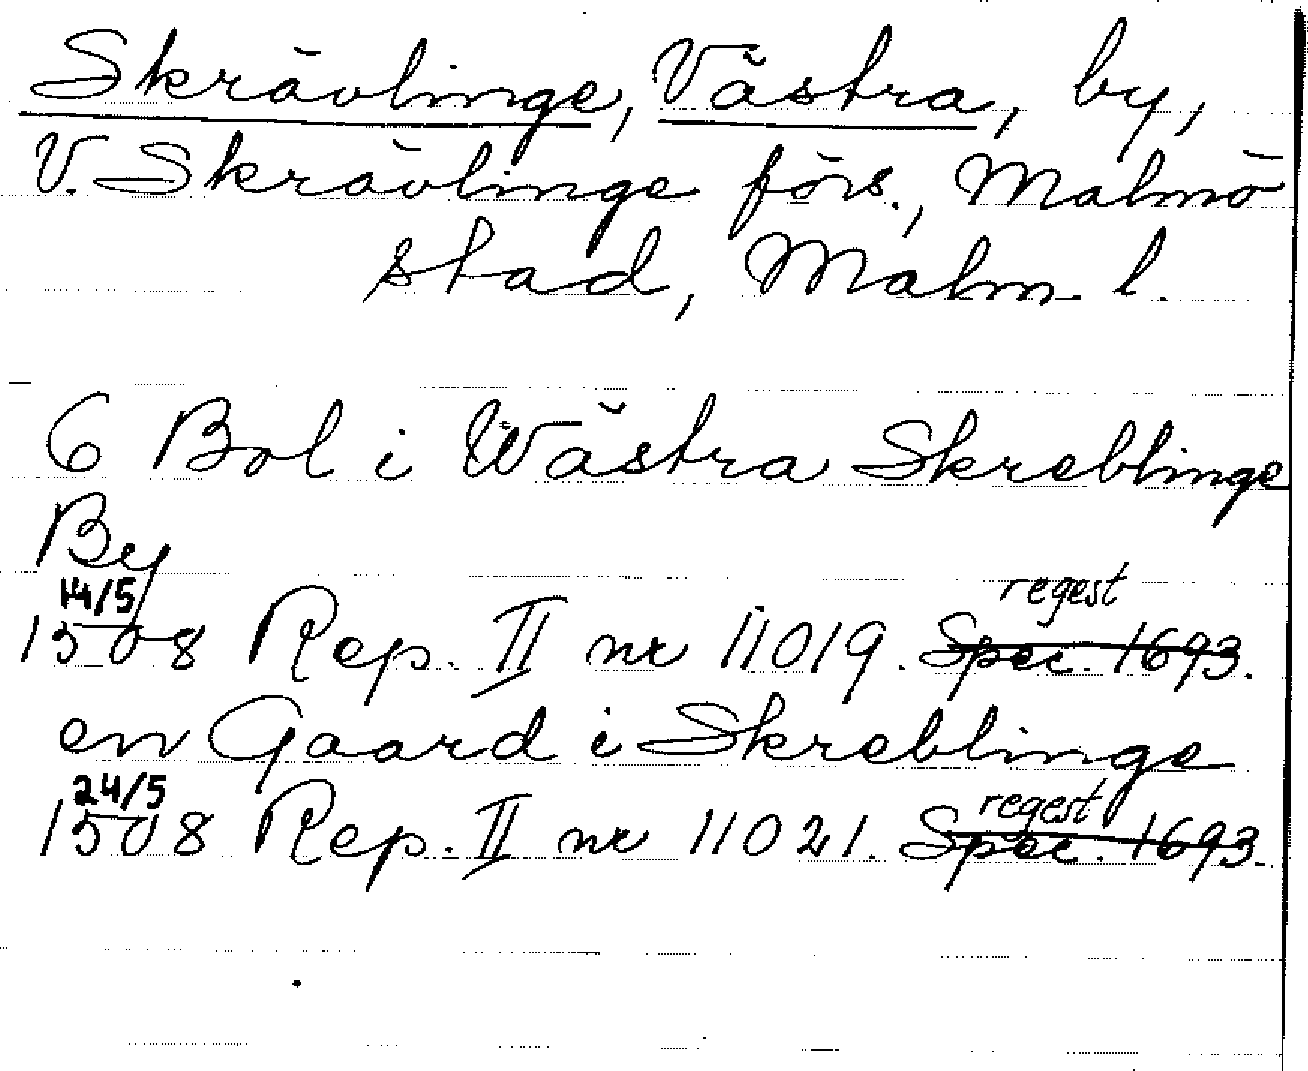 Skrävlinge, Västra, by,
V. Skrävlinge förs., Malmö
stad, Malm. l.
6 Bol i Wästra Skreblinge
By
14/5 regest
1508 Rep. II nr 11019. Spec. 1693.
en Gaard i Skreblinge
24/5 regest
1508 Rep. II nr 11021. Spec. 1693.